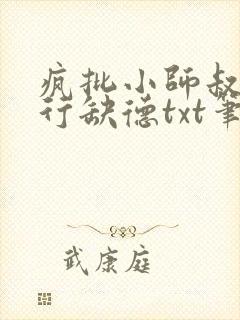 疯批小师叔
行缺德txt笔
武康庭